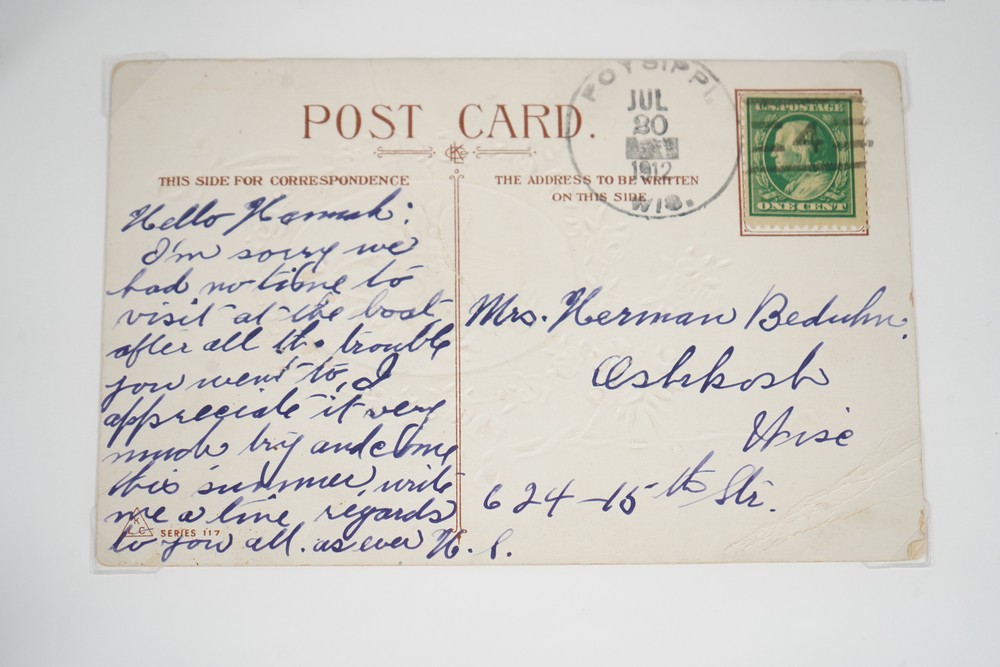 POST CARD.
THIS SIDE FOR CORRESPONDENCE
THE ADDRESS TO BE WRITTEN
ON THIS SIDE
POYSIPPI.
JUL
20
1912
WIS.
4
U.S. POSTAGE
ONE CENT
Hello Hannah:
I'm sorry we
had no time to
visit at the boat
after all the trouble
you went to, I
appreciate it very
much try and come
this summer, write
me a line, regards
to you all. as ever H. S.
Mrs. Herman Beduhn.
Oshkosh
Wisc
624-15th Str.
K
L C
SERIES 117